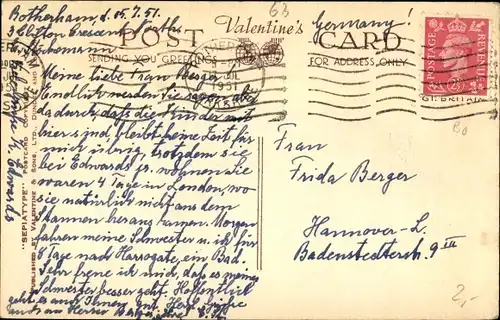 63
Germany!
Rotherham, d. 05.7.51.
3 Clifton Crescent North
Valentine's
POST CARD
SENDING YOU GREETINGS
FOR ADDRESS ONLY
1951
POSTAGE REVENUE
GT. BRITAIN
Meine liebe Frau Berger
Endlich werden Sie sagen, aber
dadurch, daß die Kinder mit
hier sind bleibt keine Zeit für
mich übrig, trotzdem sie
bei Edwards jr. wohnen. Sie
waren 4 Tage in London, wo
sie natürlich nicht aus dem
Staunen heraus kamen. Morgen
fahren meine Schwester u. ich für
8 Tage nach Harrogate, ein Bad.
Sehr freue ich mich, daß es meiner
Schwester besser geht. Hoffentlich
geht es auch Ihnen gut. Herzl. Grüße
auch an Herrn Berger
Frau
Frida Berger
Hannover-L.
Badenstedterstr. 9 III
"SEPIATYPE" POSTCARD
PUBLISHED BY VALENTINE & SONS, LTD. DUNDEE AND LONDON
2,-